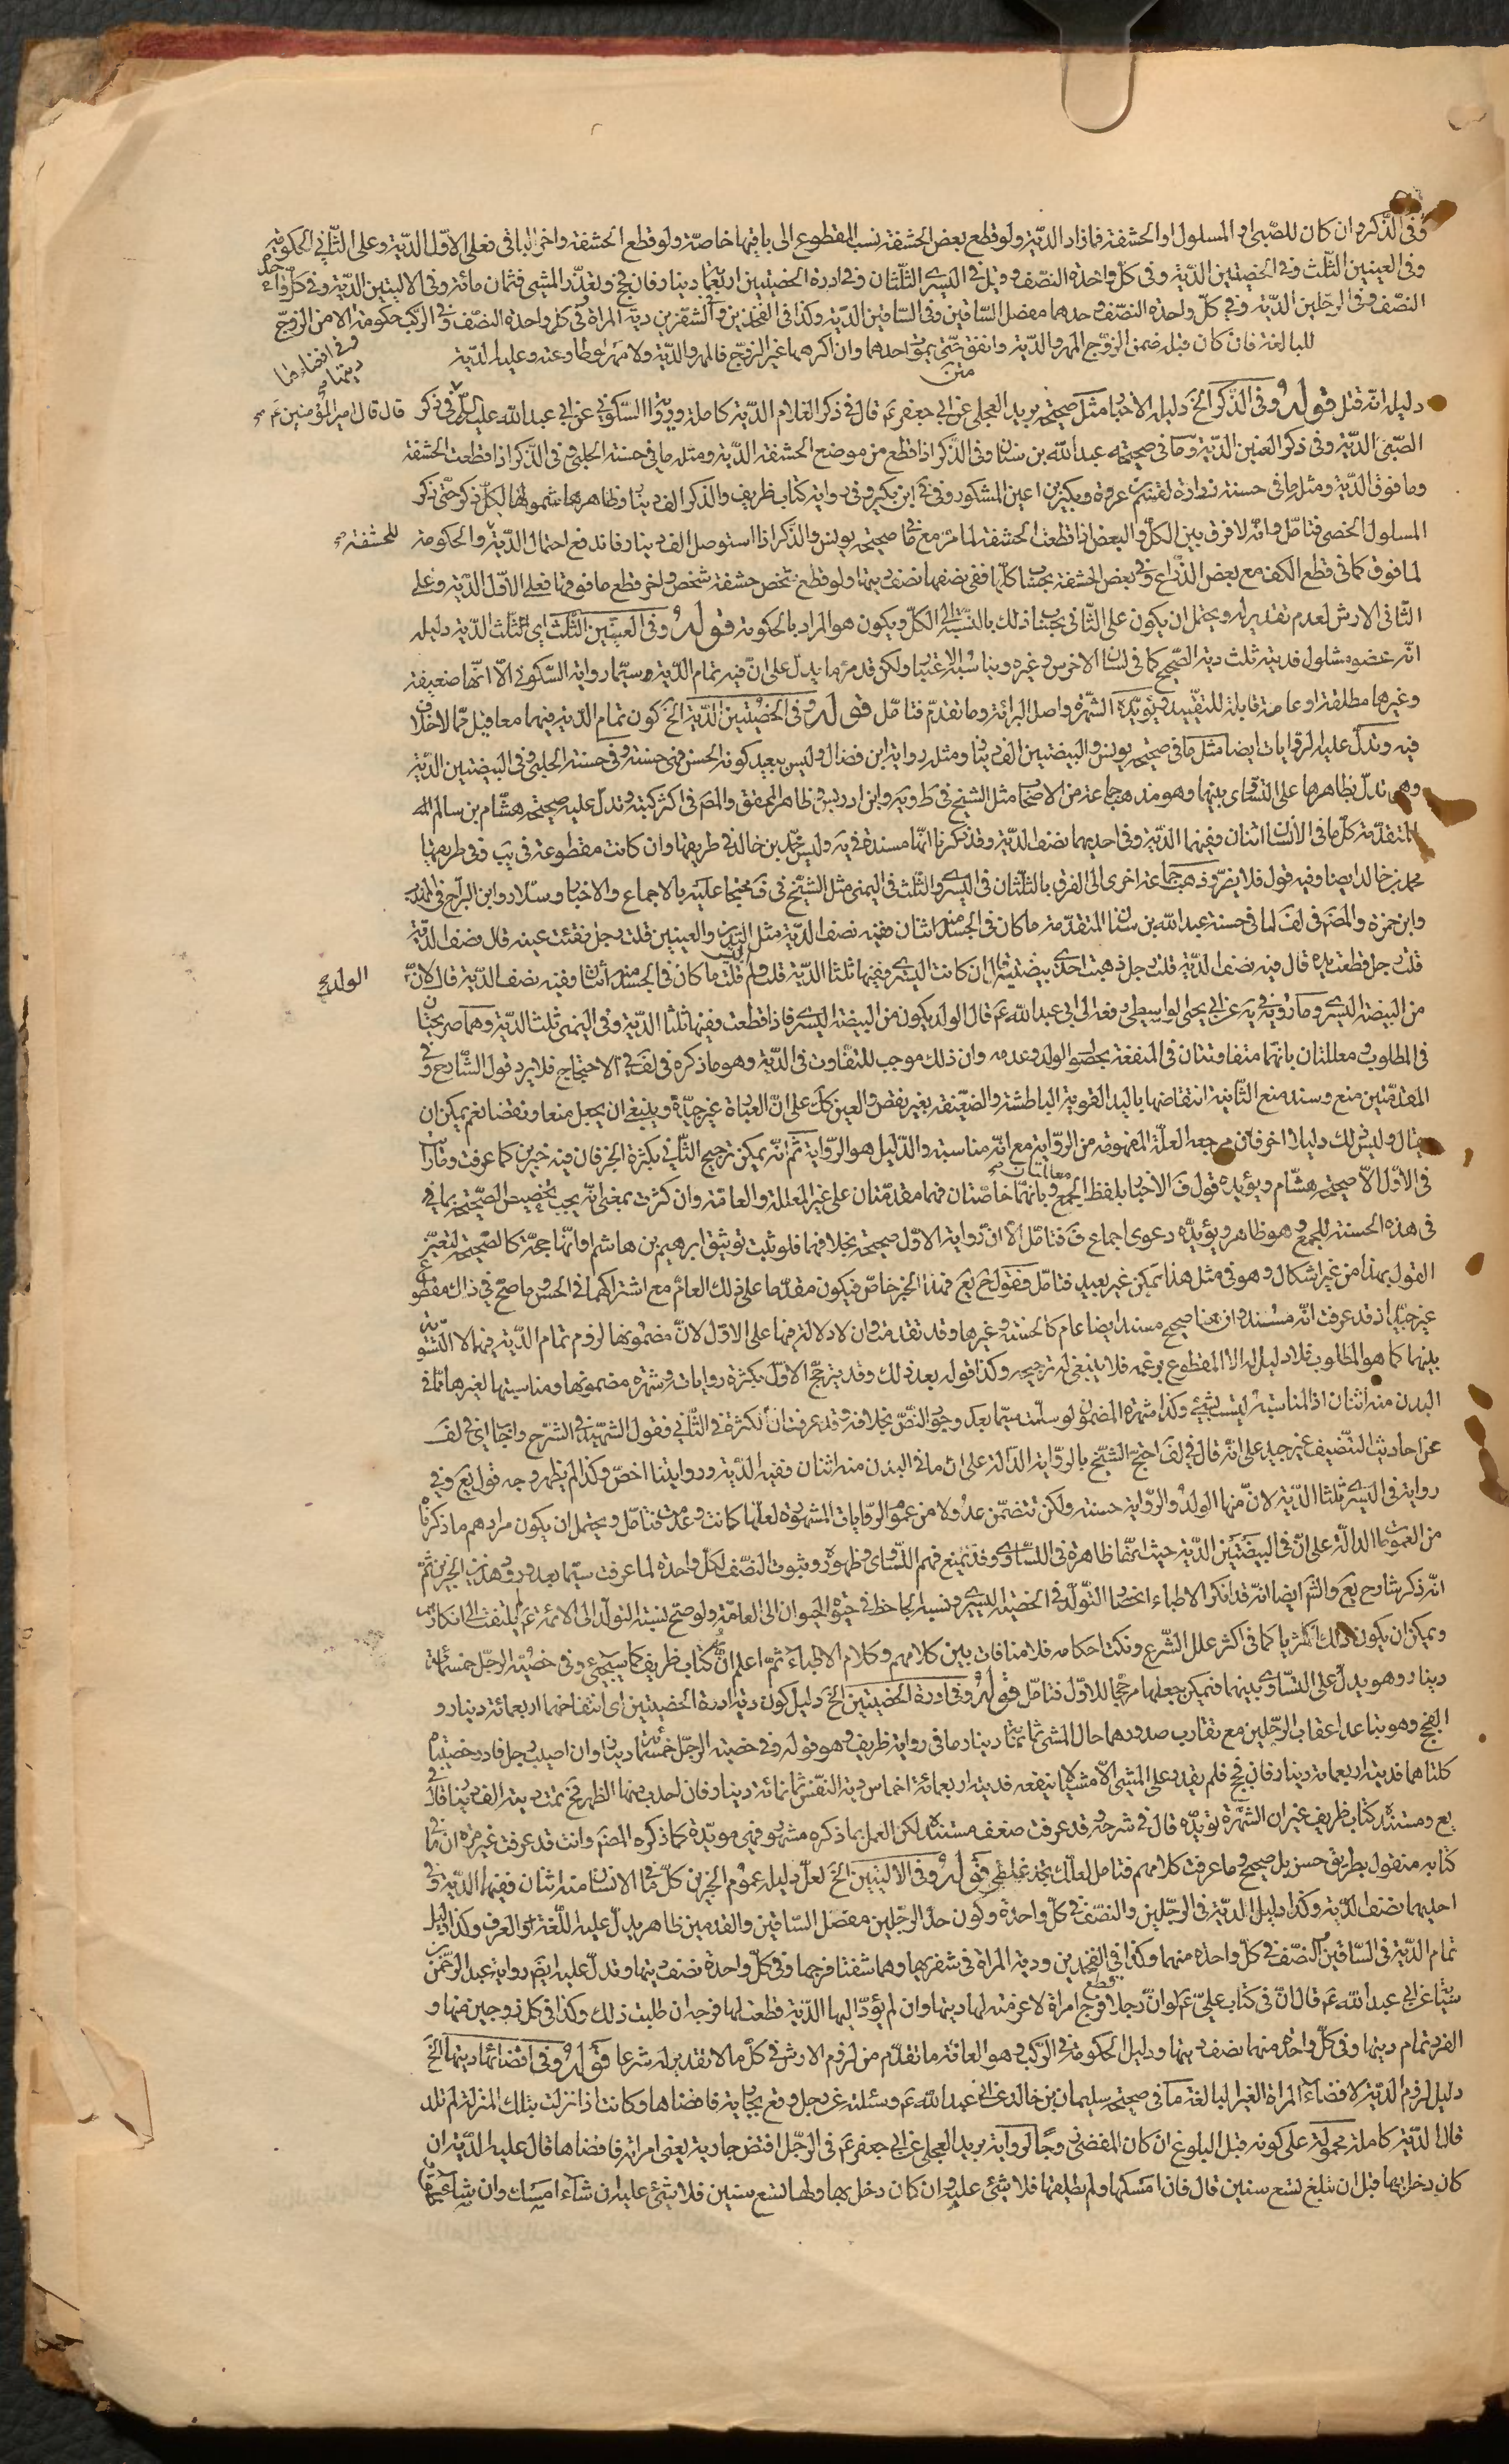 وفى الذّكر وان كان للصّبى او المسلول او الحشفة فما زاد الدّية ولو قطع بعض الحشفة نسب المقطوع الى باقيها خاصّة ولو قطع الحشفة واخر الباقى فعلى الاوّل الدّية وعلى الثّانى الحكومة
وفى العينين الثّلث وفى الخصيتين الدّية وفى كلّ واحدة النّصف وقيل فى اليسرى الثّلثان وفى ادرة الخصيتين اربعمائة دينار فان فحج وتعذّر المشى فثمان مائة وفى الاليتين الدّية وفى كلّ واحدة
النصّف وفى الرجلين الدّية وفى كلّ واحدة النصّف وحدهما مفصل السّاقين وفى السّاقين الدّية وكذا فى الفخذين وفى الشّفرين دية المرأة وفى كلّ واحدة النصّف وفى الركب حكومة الّا من الزوج
للبالغة فان كان قبله ضمن الزوّج المهر والدّية وانفق حتّى يموت احدهما وان اكرهها غير الزوّج فالمهر والدّية ولا مهر لو طاوعته وعليه الدّية
وفى افضائها ديتها
متن
دليله انّه قتل قوله وفى الذّكر الخ دليله الاخبار مثل صحيحة بريد العجلى عن ابى جعفر ع قال فى ذكر الغلام الدّية كاملة ورواية السّكونى عن ابى عبد الله عليه السّلام فى ذكر
قال قال امير المؤمنين ع
الصّبىّ الدّية وفى ذكر العنين الدّية وما فى صحيحة عبد الله بن سنان وفى الذّكر اذا قطع من موضع الحشفة الدّية ومثله ما فى حسنة الحلبى وفى الذّكر اذا قطعت الحشفة
وما فوق الدّية ومثل ما فى حسنة زرارة وفى رواية كتاب ظريف والذّكر الف دينار وظاهرها شمولها لكلّ ذكر حتّى ذكر
المسلول الخصى فتامّل وانّه لا فرق بين الكلّ والبعض اذا قطعت الحشفة لما مرّ مع ما فى صحيحة يونس والذّكر اذا استوصل الف دينار فاندفع احتمال الدّية والحكومة
للحشفة
لما فوق كما فى قطع الكف مع بعض الذّراع وفى بعض الحشفة بحساب كلّها ففى نصفها نصف ديتها ولو قطع شخص حشفة شخص واخر قطع ما فوقها فعلى الاوّل الدّية وعلى
الثّانى الارش لعدم تقدير له ويحتمل ان يكون على الثّانى بحساب ذلك بالنّسبة الى الكلّ ويكون هو المراد بالحكومة قوله وفى العينين الثّلث اى ثلث الدّية دليله
انّه عضو مشلول فديته ثلث دية الصّحيح كما فى لسان الاخرس وغيره ويناسبه الاعتبار ولكن قد مرّ ما يدلّ على انّ فيه تمام الدّية وسيّما رواية السّكونى الّا انّها ضعيفة
وغيرها مطلقة او عامة قابلة للتقييد ويؤيّده الشّهرة واصل البرائة وما تقدّم فتامّل قوله وفى الخصيتين الدّية الخ كون تمام الدّية فيهما معا قيل ممّا لا خلاف
فيه وتدلّ عليه الروايات ايضا مثل ما فى صحيحة يونس والبيضتين الف دينار ومثله رواية ابن فضال وليس ببعيد كونه الحسن فهى حسنة وفى حسنة الحلبى وفى البيضتين الدّية
وهى تدلّ بظاهرها على التساوى بينهما وهو مذهب جماعة من الاصحاب مثل الشيخ فى ط ويه وابن ادريس وظاهر المحقق والمصّ فى اكثر كتبه وتدلّ عليه صحيحة هشام بن سالم
المتقدّمة كلّ ما فى الانسان اثنان ففيهما الدّية وفى احديهما نصف الدّية وقد ذكرنا انّها مسندة فى يه وليس محمّد بن خالد فى طريقها وان كانت مقطوعة فى يب وفى طريقها
محمد بن خالد ايضا وفيه قول فلا يضرّ وذهب جماعة اخرى الى الفرق بالثلثان فى اليسرى والثّلث فى اليمنى مثل الشّيخ فى ف محتجا عليه بالاجماع والاخبار وسلّار وابن البرّاج فى المهذّب
وابن حمزة والمصّ فى لف لما فى حسنة عبد الله بن سنان المتقدّمة ما كان فى الجسد منه اثنان ففيه نصف الدّية مثل اليدين والعينين قلت رجل فقئت عينه قال نصف الدّية
قلت رجل قطعت يده قال فيه نصف الدّية قلت رجل ذهبت احدى بيضتيه قال ان كانت اليسرى ففيها ثلثا الدّية قلت ولم اليس قلت ما كان فى الجسد منه اثنان ففيه نصف الدّية قال لانّ
الولد
من البيضة اليسرى وما روى فى يه عن ابى يحيى الواسطى رفعه الى ابى عبد الله ع قال الولد يكون من البيضة اليسرى فاذا قطعت ففيها ثلثا الدّية وفى اليمنى ثلث الدّية وهما صريحتان
فى المطلوب ومعللتان بانّهما متفاوتتان فى المنفعة بحصول الولد وعدمه وان ذلك موجب للتّفاوت فى الدّية وهو ما ذكره فى لف فى الاحتجاج فلا يرد قول الشّارح وفى
المقدّمتين منع وسند منع الثّانية انتقاضها باليد القوية الباطشة والضّعيفة بغير نقص والعين كك على انّ العبارة غير جيّدة وينبغى ان يجعل منعا ونقضا نعم يمكن ان
يقال وليس لك دليلا اخر فان مرجعه العلّة المفهومة من الروّاية مع انّه مناسبة والدّليل هو الروّاية ثمّ انّه يمكن ترجيح الثّانى بكثرة الخبر فان فيه خبرين كما عرفت
فى الاوّل الّا صحيحة هشام ويؤيده قول ف الاخبار بلفظ الجمع وبانّهما خاصّتان فهما مقدّمتان على غير المعللة والعامّة وان كثرت بمعنى انّه يجب تخصيص الصّحيحة بما فى
معللتان
فى هذه الحسنة للجمع وهو ظاهر ويؤيّده دعوى اجماع ف فتامّل الّا انّ رواية الاوّل صحيحة بخلافهما فلو ثبت توثيق ابرهيم بن هاشم او انّها حجّة كالصّحيحة لتعيّن
القول بهذا من غير اشكال وهو فى مثل هذا ممكن غير بعيد فتامّل فقول يع فهذا الخبر خاصّ فيكون مقدّما على ذلك العامّ مع اشتراكهما فى الحسن وما صحّ فى ذلك مقطوع
غير جيّد اذ قد عرفت انّه مسند وان هنا صحيح مسند ايضا عام كالحسنة وغيرها وقد تقدمت وان لا دلالة فيها على الاوّل لانّ مضمونها لزوم تمام الدّية فيهما لا التسّوية
بينهما كما هو المطلوب فلا دليل له الا المقطوع بزعمه فلا ينبغى له ترجيحه وكذا قوله بعد ذلك وقد يترجّح الاوّل بكثرة رواياته وشهرة مضمونها ومناسبتها لغيرها ممّا فى
البدن منه اثنان اذ المناسبة ليست بشىء وكذا شهرة المضمون لو سلّمت سيّما بعد وجود النّصّ بخلافه وقد عرفت ان الكثرة فى الثّانى فقول الشّهيد فى الشّرح واجاب فى لف
عن احاديث التّنصيف غير جيد على انّه قال فى لف احتجّ الشّيخ بالروّاية الدّالة على انّ ما فى البدن منه اثنان ففيه الدّية وروايتنا اخصّ وكذا لم يظهر وجه قول يع وفى
رواية فى اليسرى ثلثا الدّية لانّ منها الولد والروّاية حسنة ولكن تتضمّن عدولا من عموم الروّايات المشهورة فتامّل ويحتمل ان يكون مرادهم ما ذكرنا
من العمومات الدالّة على انّ فى البيضتين الدّية حيث انّها ظاهرة فى التسّاوى وقد يمنع فهم التسّاوى وظهوره وثبوت النصّف لكلّ واحدة لما عرفت سيّما بعد ورود هذين الخبرين ثمّ
انّه ذكر شارح يع والشّهيد ايضا انّه قد انكر الاطباء انحصار التّولّد فى الخصية اليسرى ونسبه الجاحظ فى حيوة الحيوان الى العامّة ولو صحّ نسبة التولّد الى الائمة ع لم يلتفت الى انكارهم
ويمكن ان يكون ذلك اكثريا كما فى اكثر علل الشّرع ونكت احكامه فلا منافات بين كلامهم وكلام الاطباء ثمّ اعلم انّ كتاب ظريف كما سيجىء وفى خصية الرجل خمسمائة
دينار وهو يدلّ على التسّاوى بينهما فيمكن جعلها مرجّحا للاوّل فتامّل قوله وفى ادرة الخصيتين الخ دليل كون دية ادرة الخصيتين اى انتفاخهما اربعمائة دينار و
الفحج وهو تباعد اعقاب الرجلين مع تقارب صدورهما حال المشى ثمانمائة دينار ما فى رواية ظريف وهو قوله وفى خصية الرجل خمسمائة دينار وان اصيب رجل فادر خصيتاه
كلتاهما فديته اربعمائة دينار فان فحج فلم يقدر على المشى الّا مشيا لا ينفعه فديته اربعة اخماس دية النّفس ثمانمائة دينار فان احدب منها الظهر فح تمت ديته الف دينار قال فى
يع ومستنده كتاب ظريف غير ان الشّهرة تؤيّده قال فى شرحه وقد عرفت ضعف مستنده لكن العمل بما ذكره مشهور فهى مويّدة كما ذكره المصّ وانت قد عرفت غير مرّة ان ما فى
كتابه منقول بطريق حسن بل صحيح وما عرفت كلامهم فتامل لعلّك تجد غلطى قوله وفى الاليتين الخ لعلّ دليله عموم الخبرين كلّ ما فى الانسان منه اثنان ففيهما الدّية وفى
احديهما نصف الدّية وكذا دليل الدّية فى الرجّلين والنصّف فى كلّ واحدة وكون حدّ الرجّلين مفصل السّاقين والقدمين ظاهر يدلّ عليه اللّغة والعرف وكذا دليل
تمام الدّية فى السّاقين والنصّف فى كلّ واحدة منهما وكذا فى الفخذين ودية المرأة فى شفريها وهما شفتا فرجها وفى كلّ واحدة نصف ديتها وتدلّ عليه ايضا رواية عبد الرحمن بن
سيابة عن ابى عبد الله ع قال انّ فى كتاب علىّ ع لو انّ رجلا قطع فرج امرأة لاغرمته لها ديتها وان لم يؤدّ اليها الدّية قطعت لها فرجه ان طلبت ذلك وكذا فى كل زوجين منها و
الفرد تمام ديتها وفى كلّ واحدة منهما نصف ديتها ودليل الحكومة فى الركب وهو العانة ما تقدّم من لزوم الارش فى كلّ ما لا تقدير له شرعا قوله وفى افضائها ديتها الخ
دليل لزوم الدّية لافضاء المراة الغير البالغة ما فى صحيحة سليمان بن خالد عن ابى عبد الله ع وسئلته عن رجل وقع بجارية فافضاها وكانت اذا نزلت بتلك المنزلة لم تلد
قال الدّية كاملة محمولة على كونه قبل البلوغ ان كان المفضى زوجا لرواية بريد العجلى عن ابى جعفر ع فى الرجّل افتض جارية يعنى امراته فافضاها قال عليه الدّية ان
كان دخل بها قبل ان تبلغ تسع سنين قال فان امسكها ولم يطلقها فلا شىء عليه وان كان دخل بها ولها تسع سنين فلا شىء عليه ان شاء امسك وان شاء طلّق